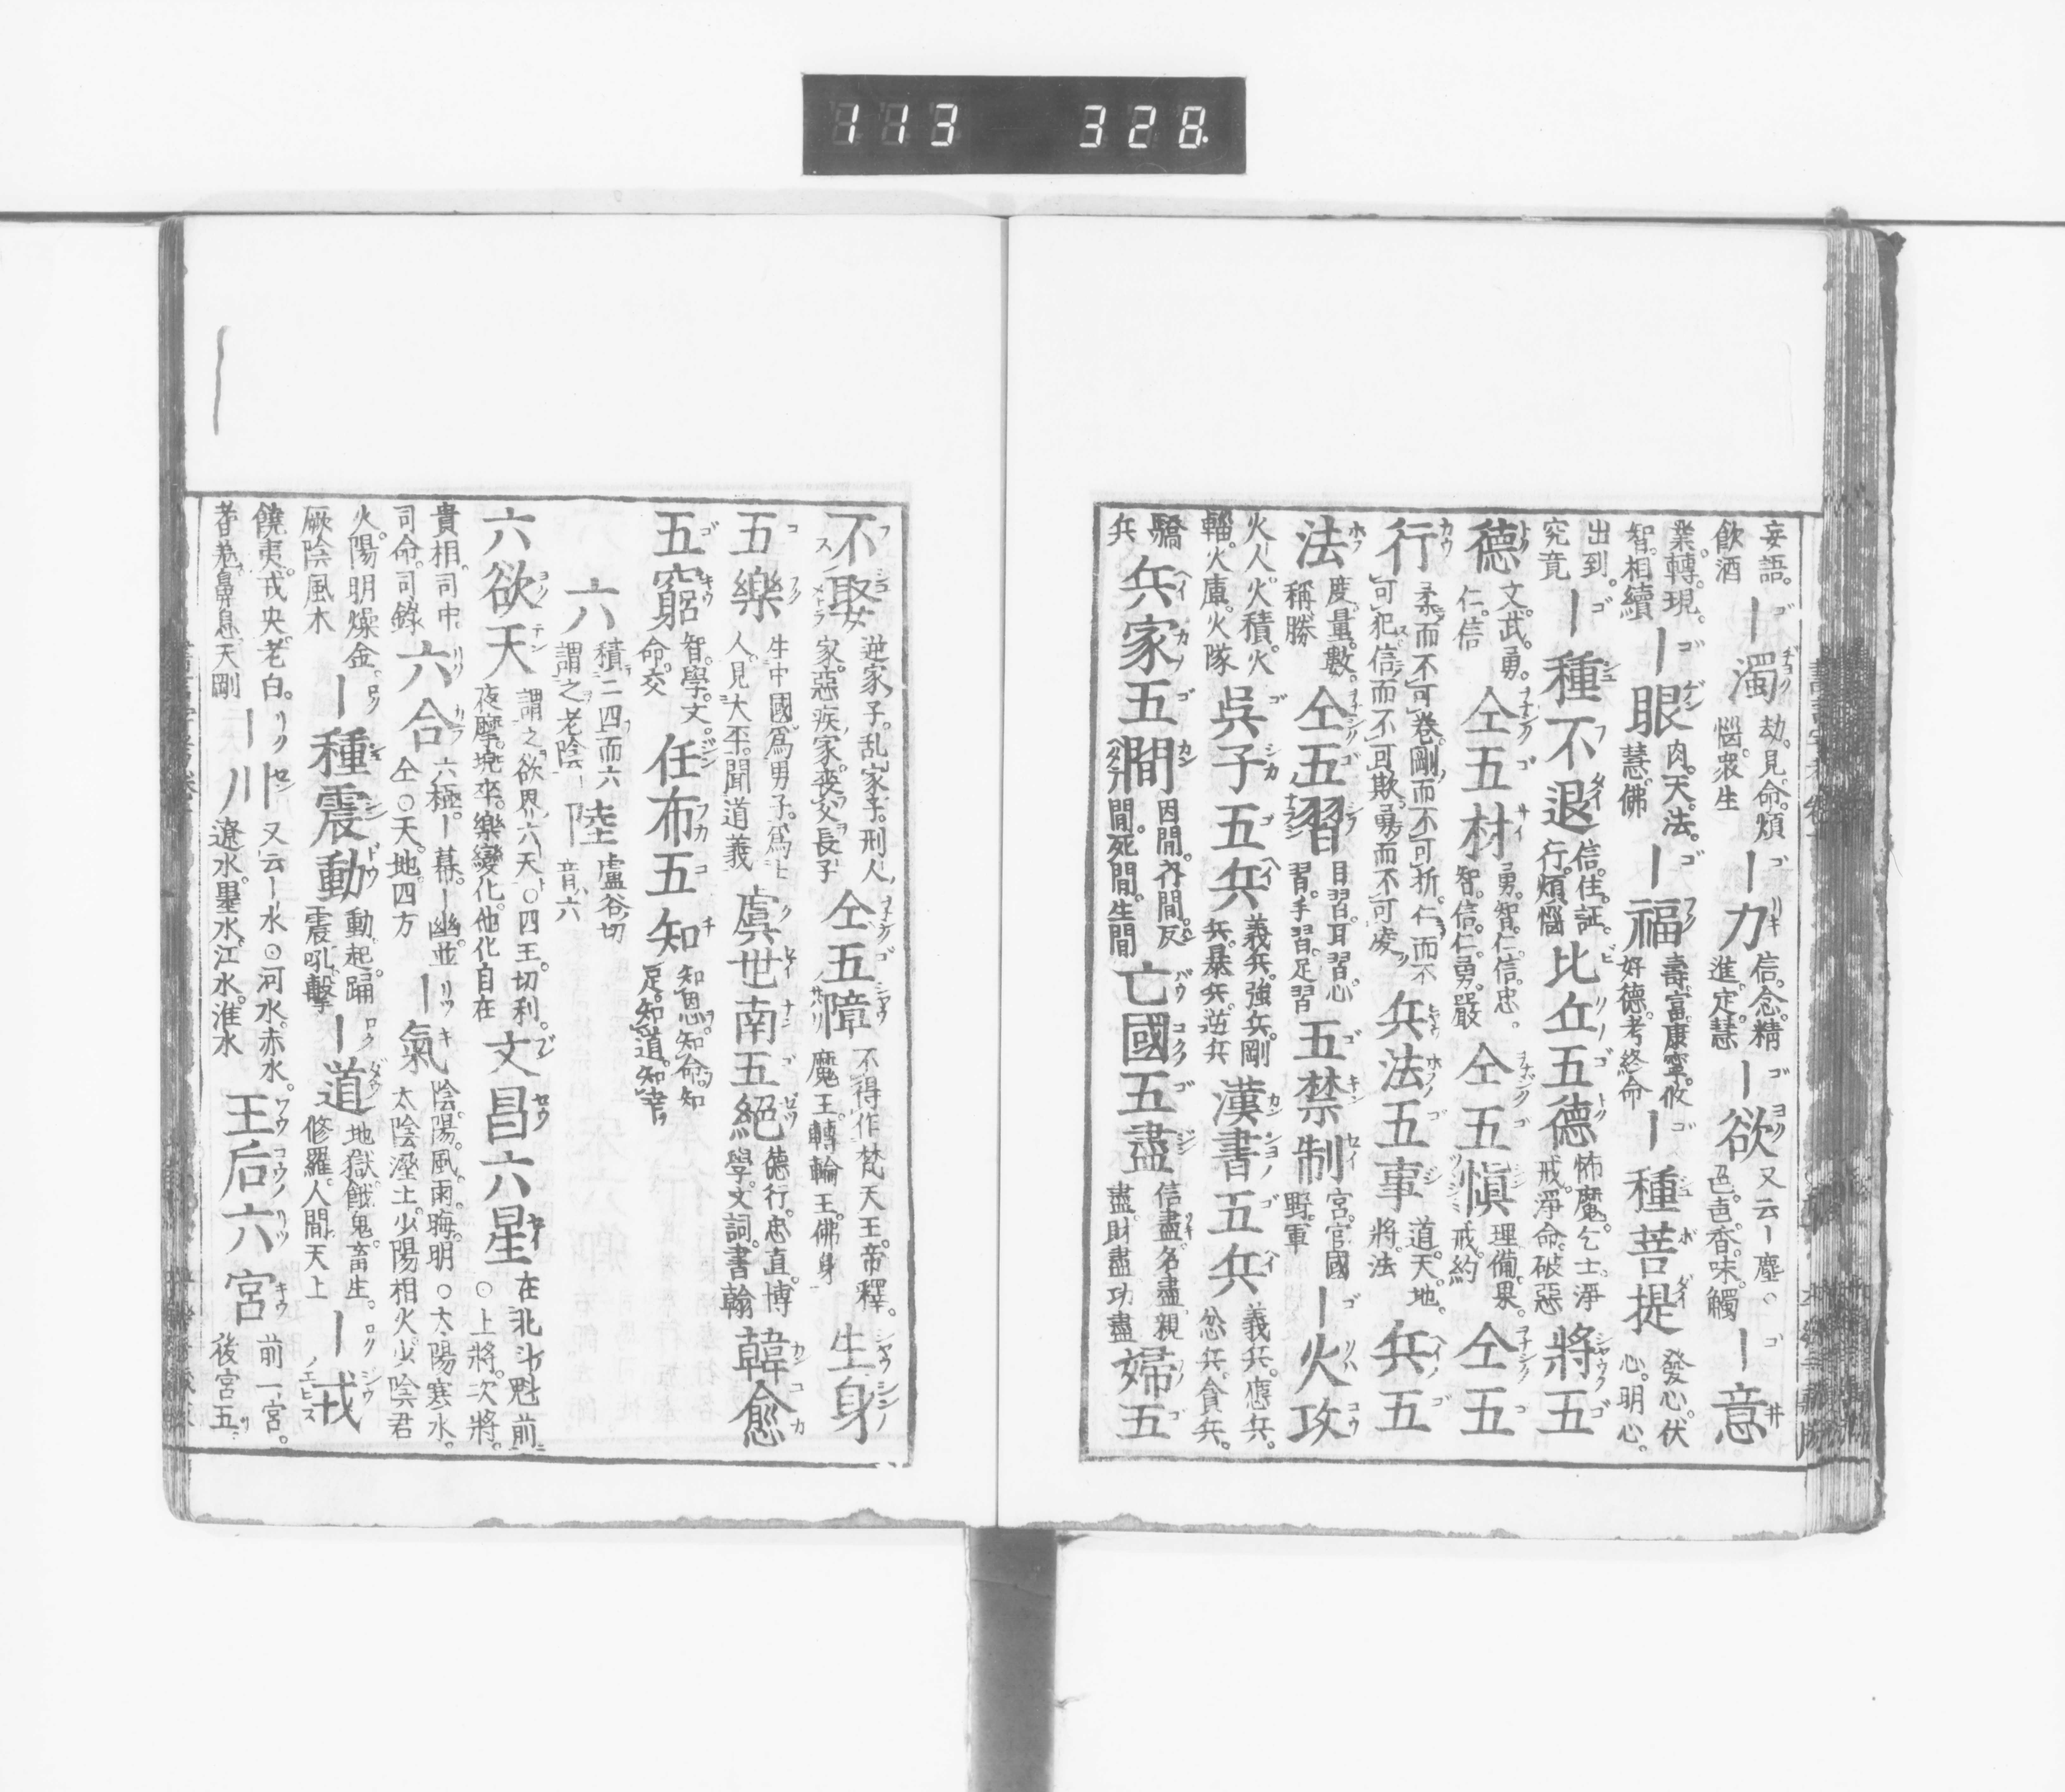 113 328
妄語。飮酒 ｜濁 劫。見。命。煩惱。衆生 ｜力 信。念。精進。定。慧 ｜欲 又云｜塵。色。聲。香。味。觸 ｜意
業。轉。現。智。相續 ｜眼 肉。天。法。慧。佛 ｜福 壽。富。康寧。攸好德。考終命 ｜種菩提 發心。伏心。明心。
出到。究竟 ｜種不退 信。住。証。行。煩惱 比丘五德 怖魔。乞士。淨戒。淨命。破惡 將五
德 文。武。勇。仁。信 仝五材 勇。智。仁。信。忠。智。信。仁。勇。嚴 仝五愼 理。備。果。戒。約 仝五
行 柔而不可卷。剛而不可折。仁而不可犯。信而不可欺。勇而不可凌 兵法五事 道。天。地。將。法 兵五
法 度。量。數。稱。勝 仝五習 目習。耳習。心習。手習。足習 五禁制 宮。官。國。野。軍 ｜火攻
火人。火積。火輜。火庫。火隊 呉子五兵 義兵。強兵。剛兵。暴兵。逆兵 漢書五兵 義兵。應兵。忿兵。貪兵。
驕兵 兵家五間 因間。內間。反間。死間。生間 亡國五盡 信盡。名盡。親盡。財盡。功盡 婦五
不娶 逆家子。乱家子。刑人家。惡疾家。喪父長子 仝五障 不得作梵天王。帝釋。魔王。轉輪王。佛身 生身
五樂 生中國。爲男子。爲士人。見大平。聞道義 虞世南五絕 德行。忠直。博學。文詞。書翰 韓愈
五窮 智。學。文。命。交 任布五知 知恩。知命。知足。知道。知幸
六 積二四而六謂之老陰 陸 盧谷切音六
六欲天 謂之欲界六天○四王。忉利。夜摩。兜率。樂變化。他化自在 文昌六星 在北斗魁前⊙上將。次將。
貴相。司中。司命。司錄 六合 六極。｜幕。｜幽並仝○天。地。四方 ｜氣 陰。陽。風。雨。晦。明○太陽寒水。太陰溼土。少陽相火。少陰君
火。陽明燥金。厥陰風木 ｜種震動 動。起。踊。震。吼。擊 ｜道 地獄。餓鬼。畜生。修羅。人間。天上 ｜戎
饒夷。戎央。老白。耆羌。鼻息。天剛 ｜川 又云｜水⊙河水。赤水。遼水。墨水。江水。淮水 王后六宮 前一宮。後宮五